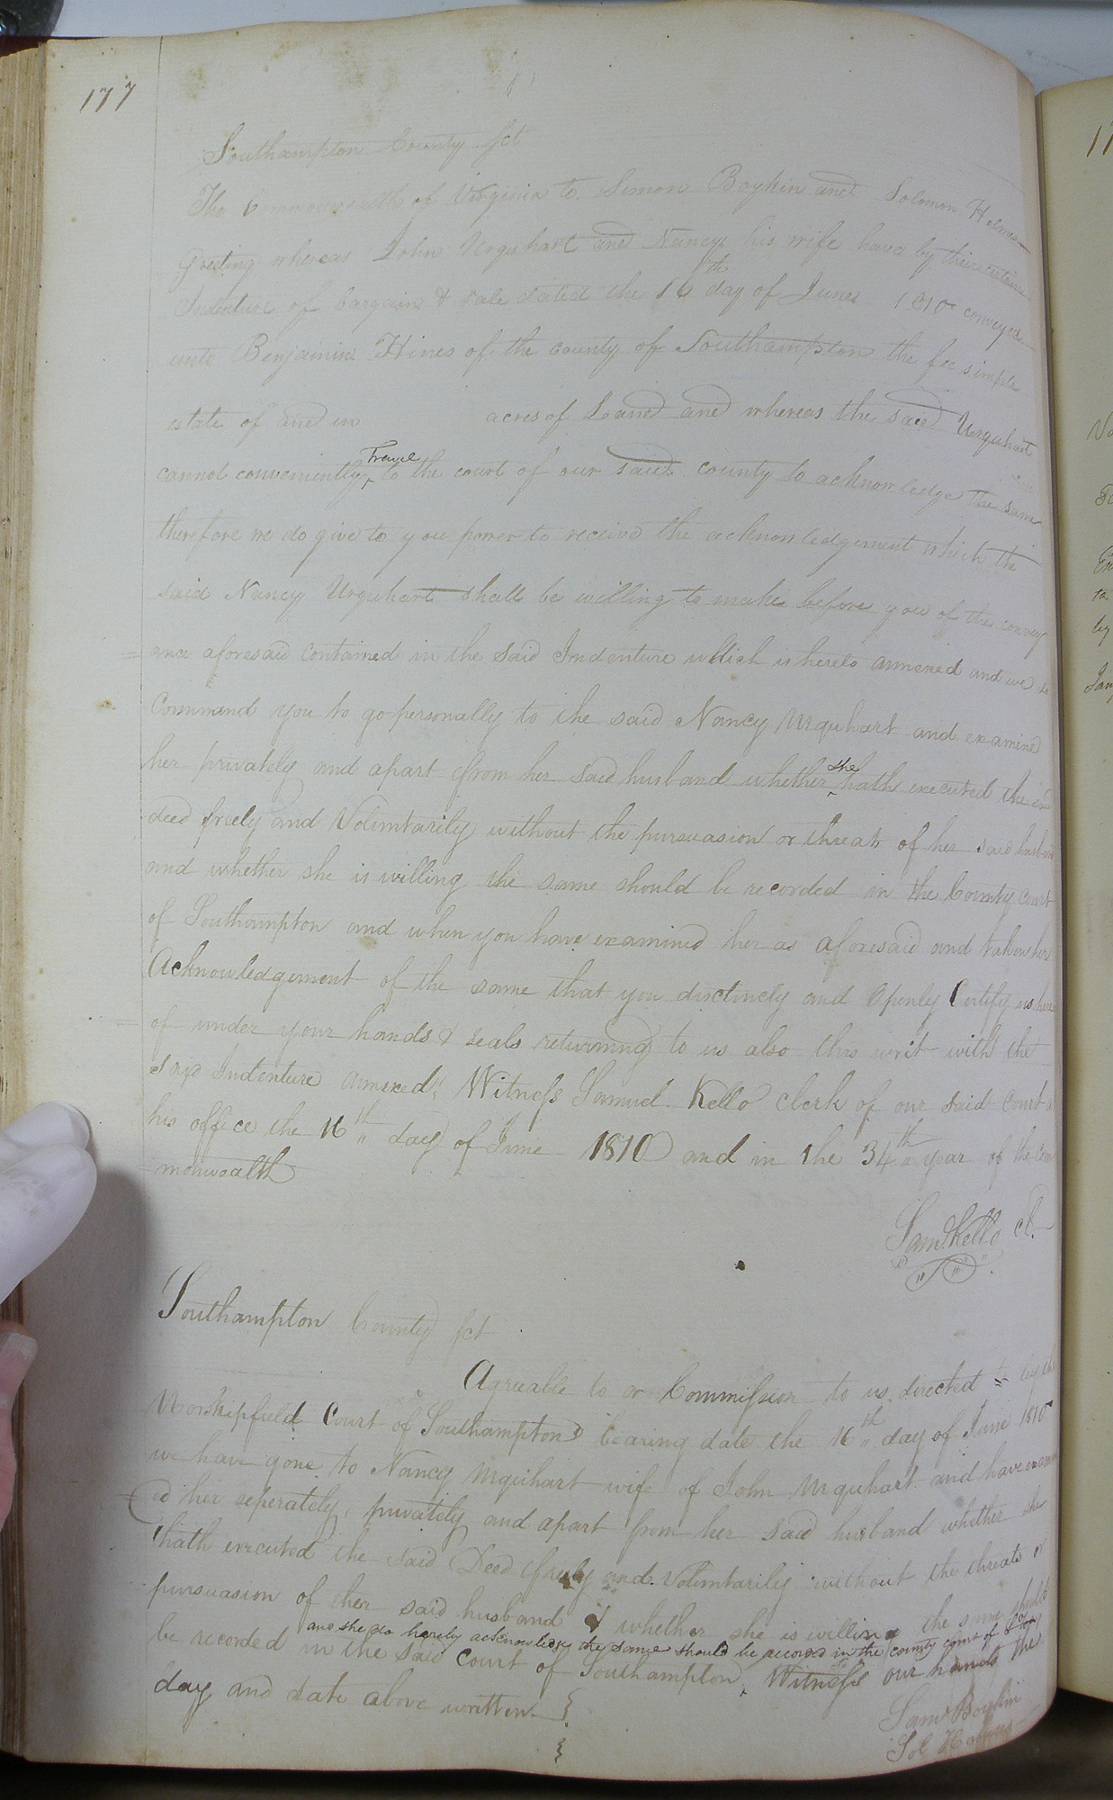 177
Southampton County sct
The Commonwealth of Virginia to Simon Boykin and Solomon Holmes
Greeting whereas John Urquhart and Nancy his wife have by their certain
Indenture of bargain & sale dated the 16th day of June 1810 conveyed
unto Benjamin Hines of the county of Southampton the fee simple
estate of and in acres of Land and whereas the said Urquhart
cannot conveniently Travel to the court of our said county to acknowledge the same
therefore we do give to you power to receive the acknowledgement which the
said Nancy Urquhart shall be willing to make before you of the convey
=ance aforesaid contained in the said Indenture which is hereto annexed and we do
Command you to go personally to the said Nancy Urquhart and examine
her privately and apart from her said husband whether she hath executed the said
deed freely and Volimtarily without the pursuasion or threats of her said husband
and whether she is willing the same should be recorded in the County Court
of Southampton and when you have examined her as aforesaid and taken her
Acknowledgement of the same that you disctincly and Openly Certify us here
=of under your hands & seals returning to us also this writ with the
said Indenture annexed, Witness Samuel Kello clerk of our said court at
his office the 16th day of June 1810 and in the 34th year of the Com
monwealth
Sam. Kello cl.
Southampton County sct
Agreeable to or Commission to us directed by the
Worshipfield Court of Southampton bearing date the 16th day of June 1810
we have gone to Nancy Urquhart wife of John Urquhart and have examin
ed her seperately, privately and apart from her said husband whether she
hath executed the said Deed freely and Volimtarily without the threats or
pursuasion of her said husband & whether she is willing the same should
and she do hereby acknowledge the same should be record in the county court of S.ton
be recorded in the said Court of Southampton, Witness our hands the
day and date above written
Sam Boykin
Sol Holmes